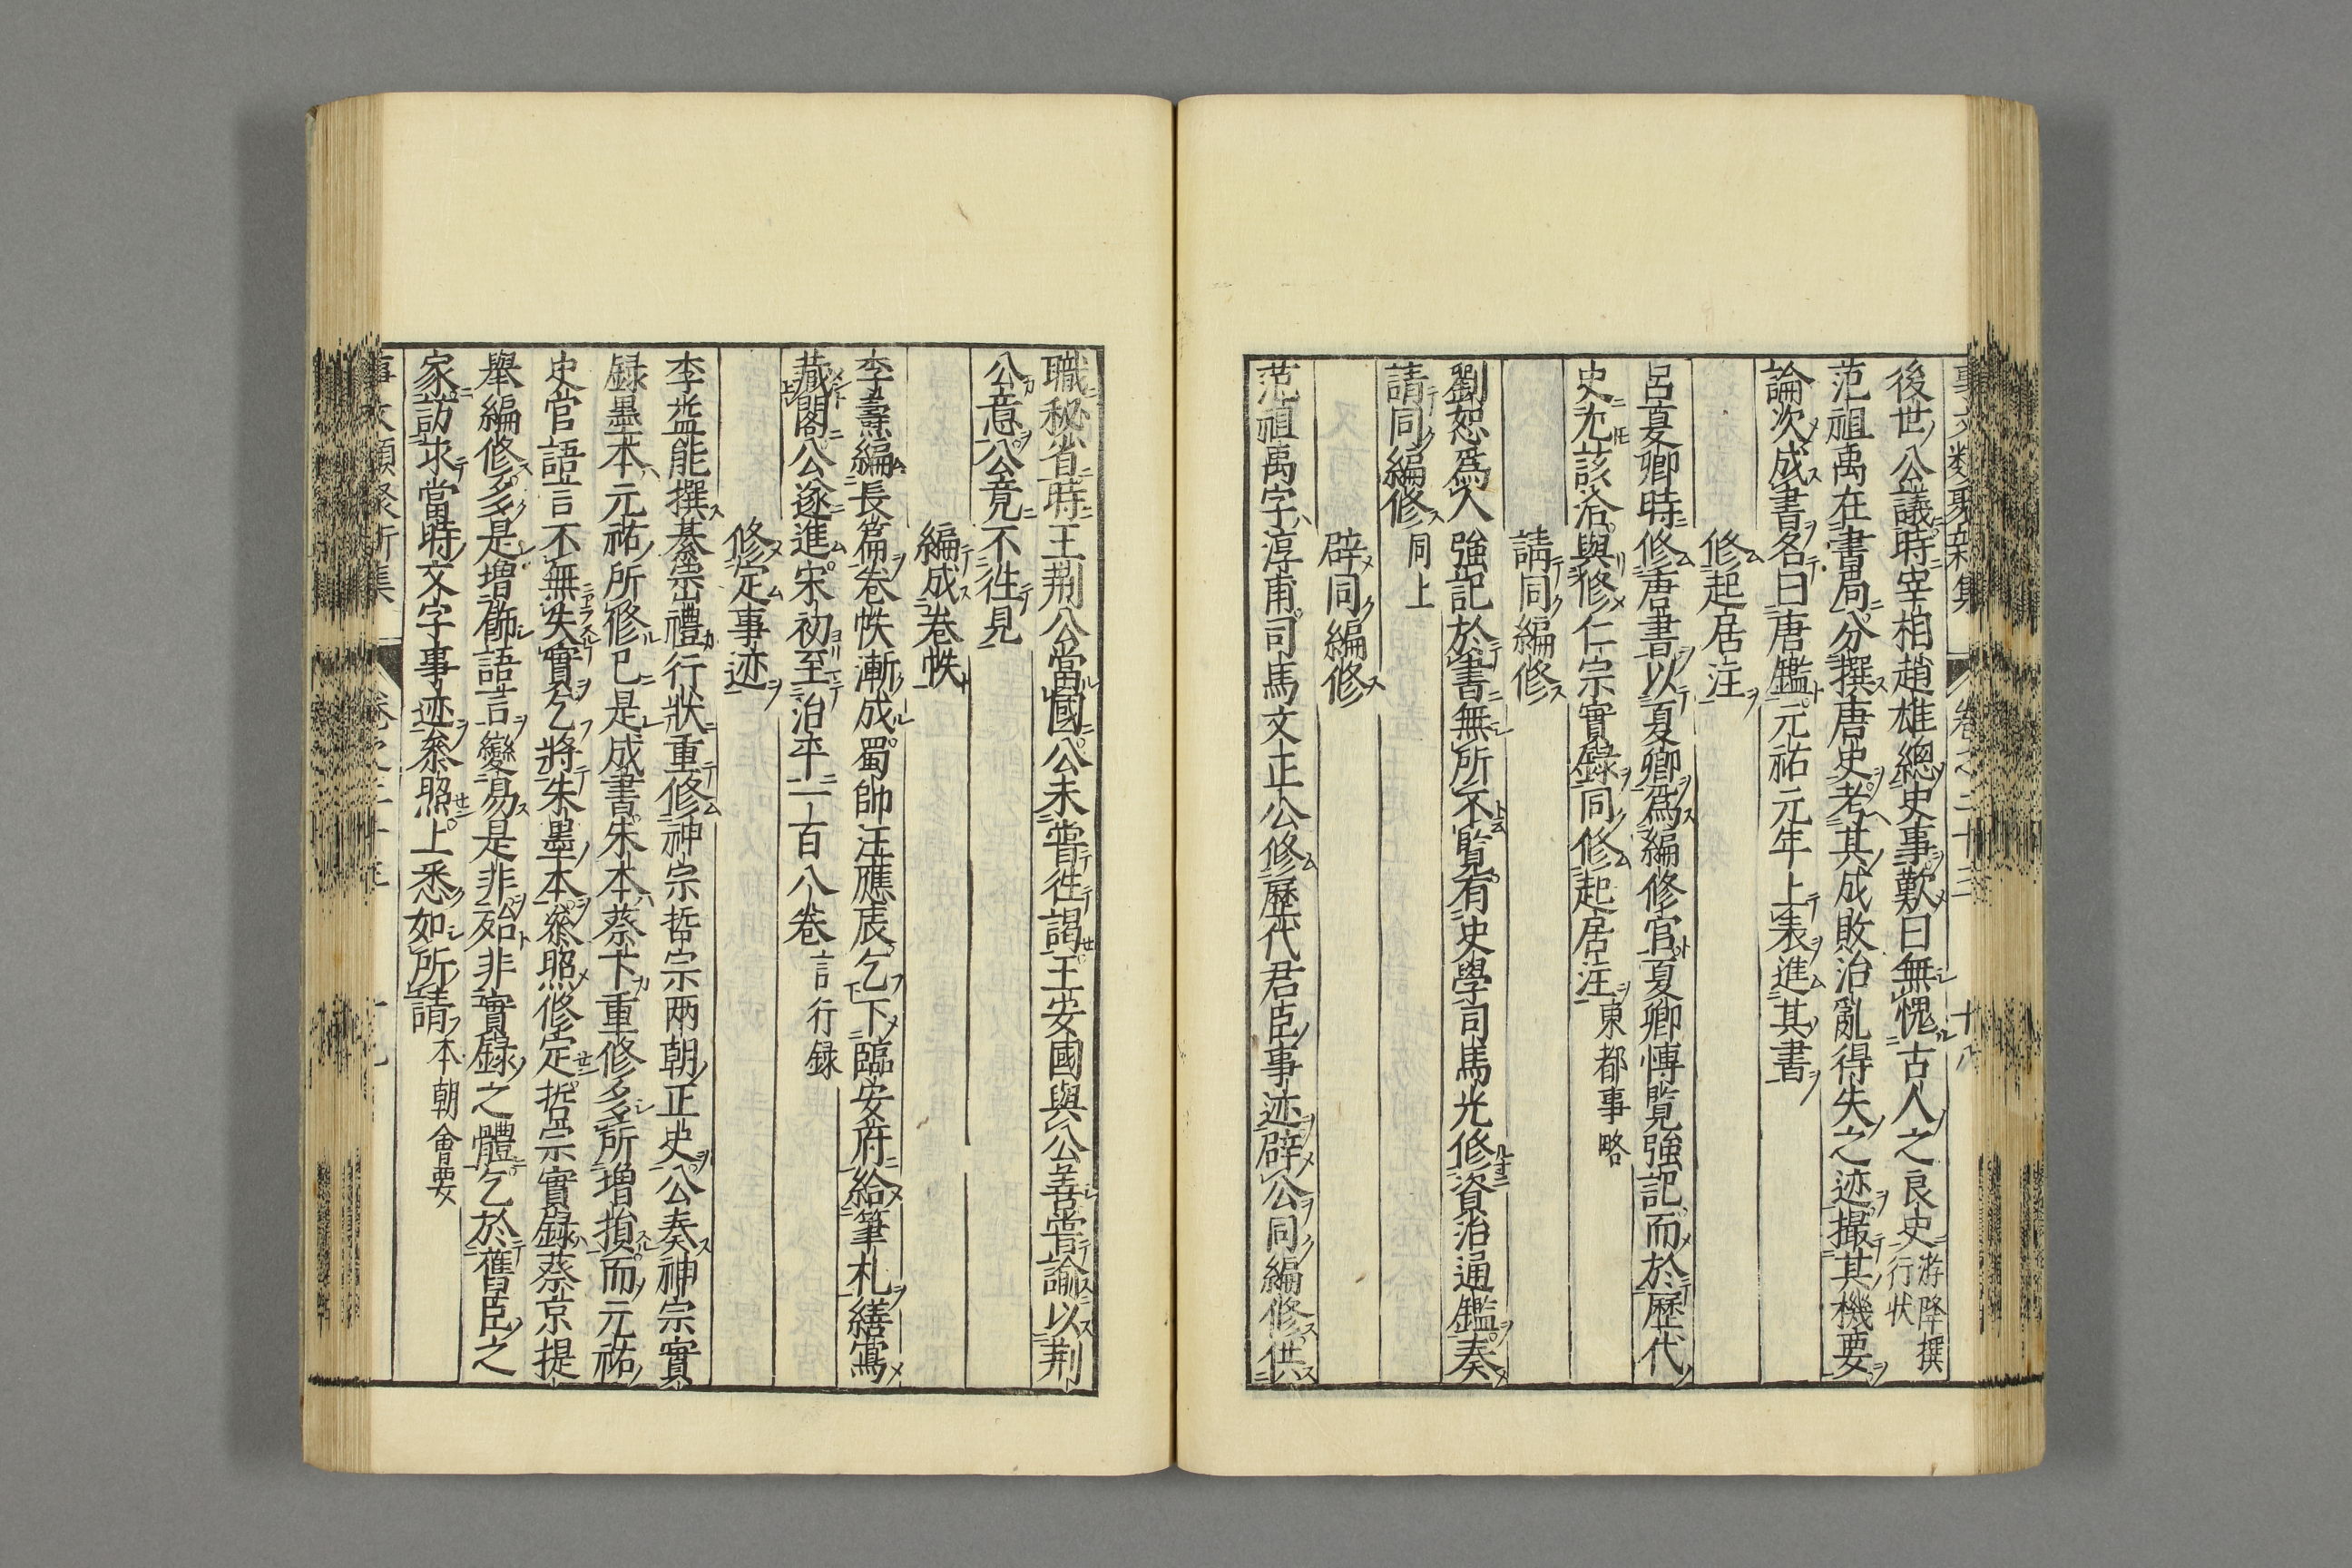 後世公議時宰相趙雄總史事歎曰無愧古人之良史游降撰行狀
范祖禹在書局分撰唐史考其成敗治亂得失之迹撮其機要
論次成書名曰唐鑑元祐元年上表進其書
修起居注
呂夏卿時修唐書以夏卿爲編修官夏卿愽覽強記而於歷代
史尤該洽與修仁宗實録同修起居注東都事略
請同編修
劉恕爲人強記於書無所不覧有史學司馬光修資治通鑑奏
請同編修同上
辟同編修
范祖禹字淳甫司馬文正公修歷代君臣事迹辟公同編修供
職秘省時王荆公當國公未嘗徃謁王安國與公善嘗諭以荆
公意公竟不徃見
編成卷帙
李燾編長篇卷帙漸成蜀帥汪應辰乞下臨安府給筆札繕寫
藏閣公遂進宋初至治平一百八卷言行録
修定事迹
李益能撰綦崇禮行狀重修神宗哲宗兩朝正史公奏神宗實
録墨本元祐所修已是成書朱本蔡卞重修多所増損而元祐
史官語言不無失實乞將朱墨本叅照修定哲宗實録蔡京提
舉編修多是増飾語言變易是非殆非實録之體乞於舊臣之
家訪求當時文字事迹叅照上悉如所請本朝會要